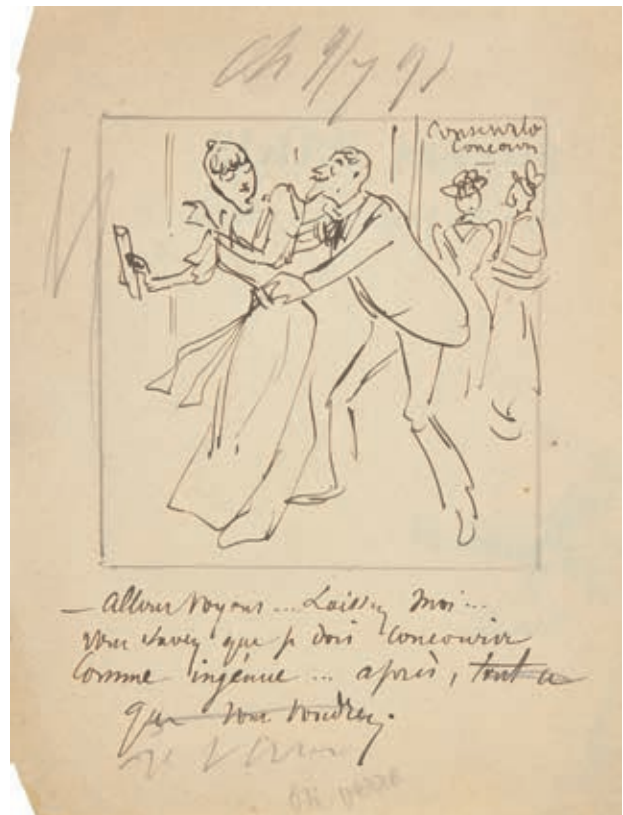 Conservato
Concours
— Allons voyons ... Laissez moi ...
vous savez que je dois concourir
comme ingénue ... après, tout ce
que vous voudrez.